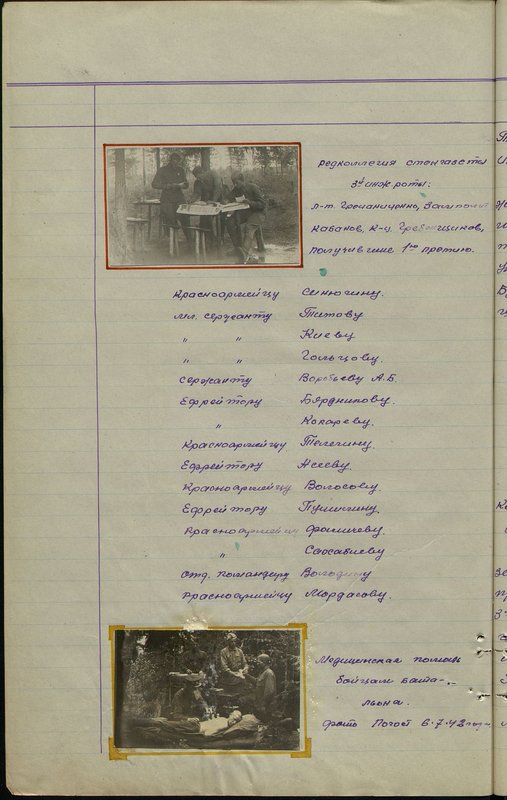 Редколлегия стенгазеты
3й инж роты:
л-т. Гречаниченко, Замполит
Кабанов, к-ц. Гребенщиков,
получившие 1ую премию.
Красноармейцу Синюгину.
мл. сержанту Титову
" " Киеву
" " Гольцову.
сержанту Воробьеву А.Б.
Ефрейтору
" Кокареву.
Красноармейцу Телегину.
Ефрейтору Асееву.
Красноармейцу Волосову.
Ефрейтору Пушигину
Красноармейцу Фомичеву.
"
Отд. командиру Володину
Красноармейцу Мордасову.
Медицинская помощь
бойцам бата-
льона.
Фото Погост 6.7.42